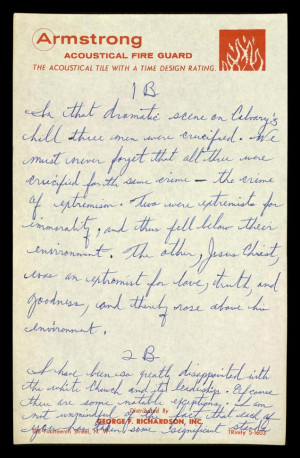 Armstrong
ACOUSTICAL FIRE GUARD
THE ACOUSTICAL TILE WITH A TIME DESIGN RATING
1B
In that dramatic scene on Calvary's
hill three men were crucified. We
must never forget that all three were
crucified for the same crime — the crime
of extremism. Two were extremists for
immorality, and thus fell below their
environment. The other, Jesus Christ,
was an extremist for love, truth, and
goodness, and thereby rose above his
environment.
2B
I have been so greatly disappointed with
the white church and its leadership. Of course
there are some notable exceptions. I am
Distributed By
not unmindful of the fact that each of
GEORGE F. RICHARDSON, INC.
you has taken some significant stands
Street, N.